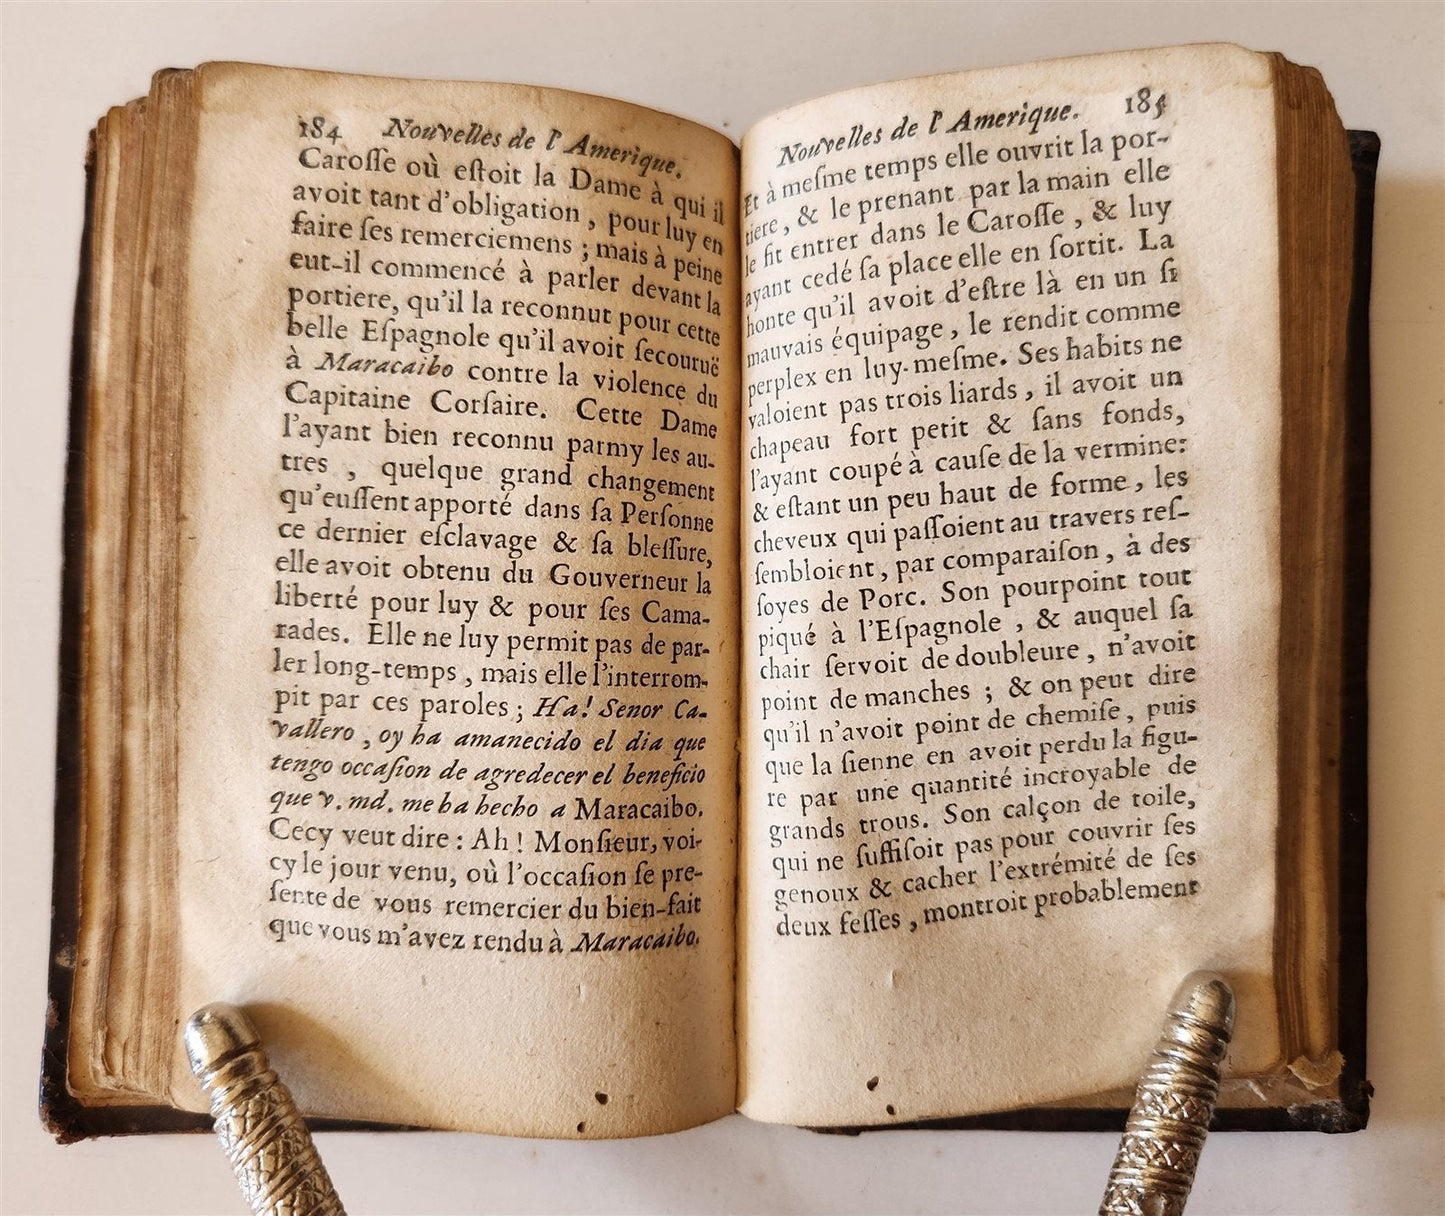 184 Nouvelles de l'Amerique.
Caroſſe où eſtoit la Dame à qui il
avoit tant d'obligation, pour luy en
faire ſes remerciemens ; mais à peine
eut-il commencé à parler devant la
portiere, qu'il la reconnut pour cette
belle Eſpagnole qu'il avoit ſecouruë
à Maracaibo contre la violence du
Capitaine Corſaire. Cette Dame
l'ayant bien reconnu parmy les au-
tres , quelque grand changement
qu'euſſent apporté dans ſa Perſonne
ce dernier eſclavage & ſa bleſſure,
elle avoit obtenu du Gouverneur la
liberté pour luy & pour ſes Cama-
rades. Elle ne luy permit pas de par-
ler long-temps , mais elle l'interrom-
pit par ces paroles ; Ha! Senor Ca-
vallero , oy ha amanecido el dia que
tengo occaſion de agredecer el beneficio
que v. md. me ha hecho a Maracaibo.
Cecy veut dire : Ah ! Monſieur, voi-
cy le jour venu, où l'occaſion ſe pre-
ſente de vous remercier du bien-fait
que vous m'avez rendu à Maracaibo.
Nouvelles de l'Amerique. 185
Et à meſme temps elle ouvrit la por-
tiere, & le prenant par la main elle
le fit entrer dans le Caroſſe , & luy
ayant cedé ſa place elle en ſortit. La
honte qu'il avoit d'eſtre là en un ſi
mauvais équipage , le rendit comme
perplex en luy-meſme. Ses habits ne
valoient pas trois liards , il avoit un
chapeau fort petit & ſans fonds,
l'ayant coupé à cauſe de la vermine:
& eſtant un peu haut de forme , les
cheveux qui paſſoient au travers reſ-
ſembloient , par comparaiſon , à des
ſoyes de Porc. Son pourpoint tout
piqué à l'Eſpagnole , & auquel ſa
chair ſervoit de doubleure , n'avoit
point de manches ; & on peut dire
qu'il n'avoit point de chemiſe , puis
que la ſienne en avoit perdu la figu-
re par une quantité incroyable de
grands trous. Son calçon de toile,
qui ne ſuffiſoit pas pour couvrir ſes
genoux & cacher l'extrémité de ſes
deux feſſes , montroit probablement